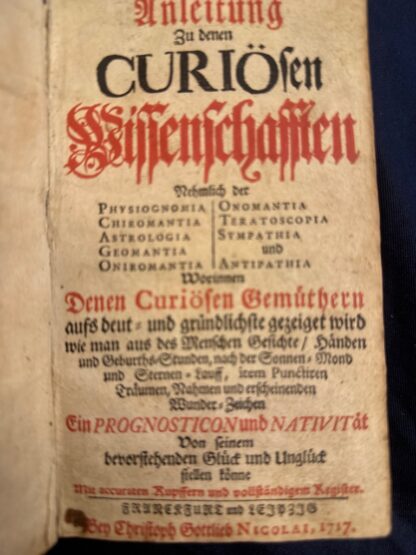 Anleitung
Zu denen
CURIÖsen
Wissenschafften
Nehmlich der
PHYSIOGNOMIA
CHIROMANTIA
ASTROLOGIA
GEOMANTIA
ONIROMANTIA
ONOMANTIA
TERATOSCOPIA
SYMPATHIA
und
ANTIPATHIA
Worinnen
Denen Curiösen Gemüthern
aufs deut- und gründlichste gezeiget wird
wie man aus des Menschen Gesichte/ Händen
und Geburths-Stunden, nach der Sonnen- Mond
und Sternen-Lauff, item Punctiren
Träumen, Nahmen und erscheinenden
Wunder-Zeichen
Ein PROGNOSTICON und NATIVITät
Von seinem
bevorstehenden Glück und Unglück
stellen könne
Mit accuraten Kupffern und vollständigem Register.
FRANCKFURT und LEIPZIG
Bey Christoph Gottlieb NICOLAI, 1717.